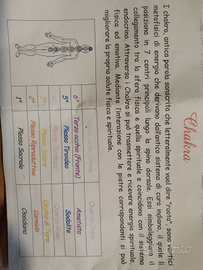 Chakra
I chakra, antica parola sanscrita che letteralmente vuol dire "ruota" sono vortici
metafisici di energia che derivano dall'antico sistema di cura indiano, il quale li
posiziona in 7 centri principali lungo la spina dorsale. Essi simboleggiano il
collegamento tra la sfera fisica e quella spirituale e coincidono con il sistema
endocrino. Attraverso i Chakra si può trasmettere e ricevere energia spirituale,
fisica ed emotiva. Mediante l'interazione con le pietre corrispondenti si può
migliorare la propria salute fisica e spirituale.
6° Terzo occhio (Fronte) Ametista
5° Plesso Tiroideo Sodalite
2° Plesso Riproduttivo Corniola
1° Plesso Sacrale Ossidiana